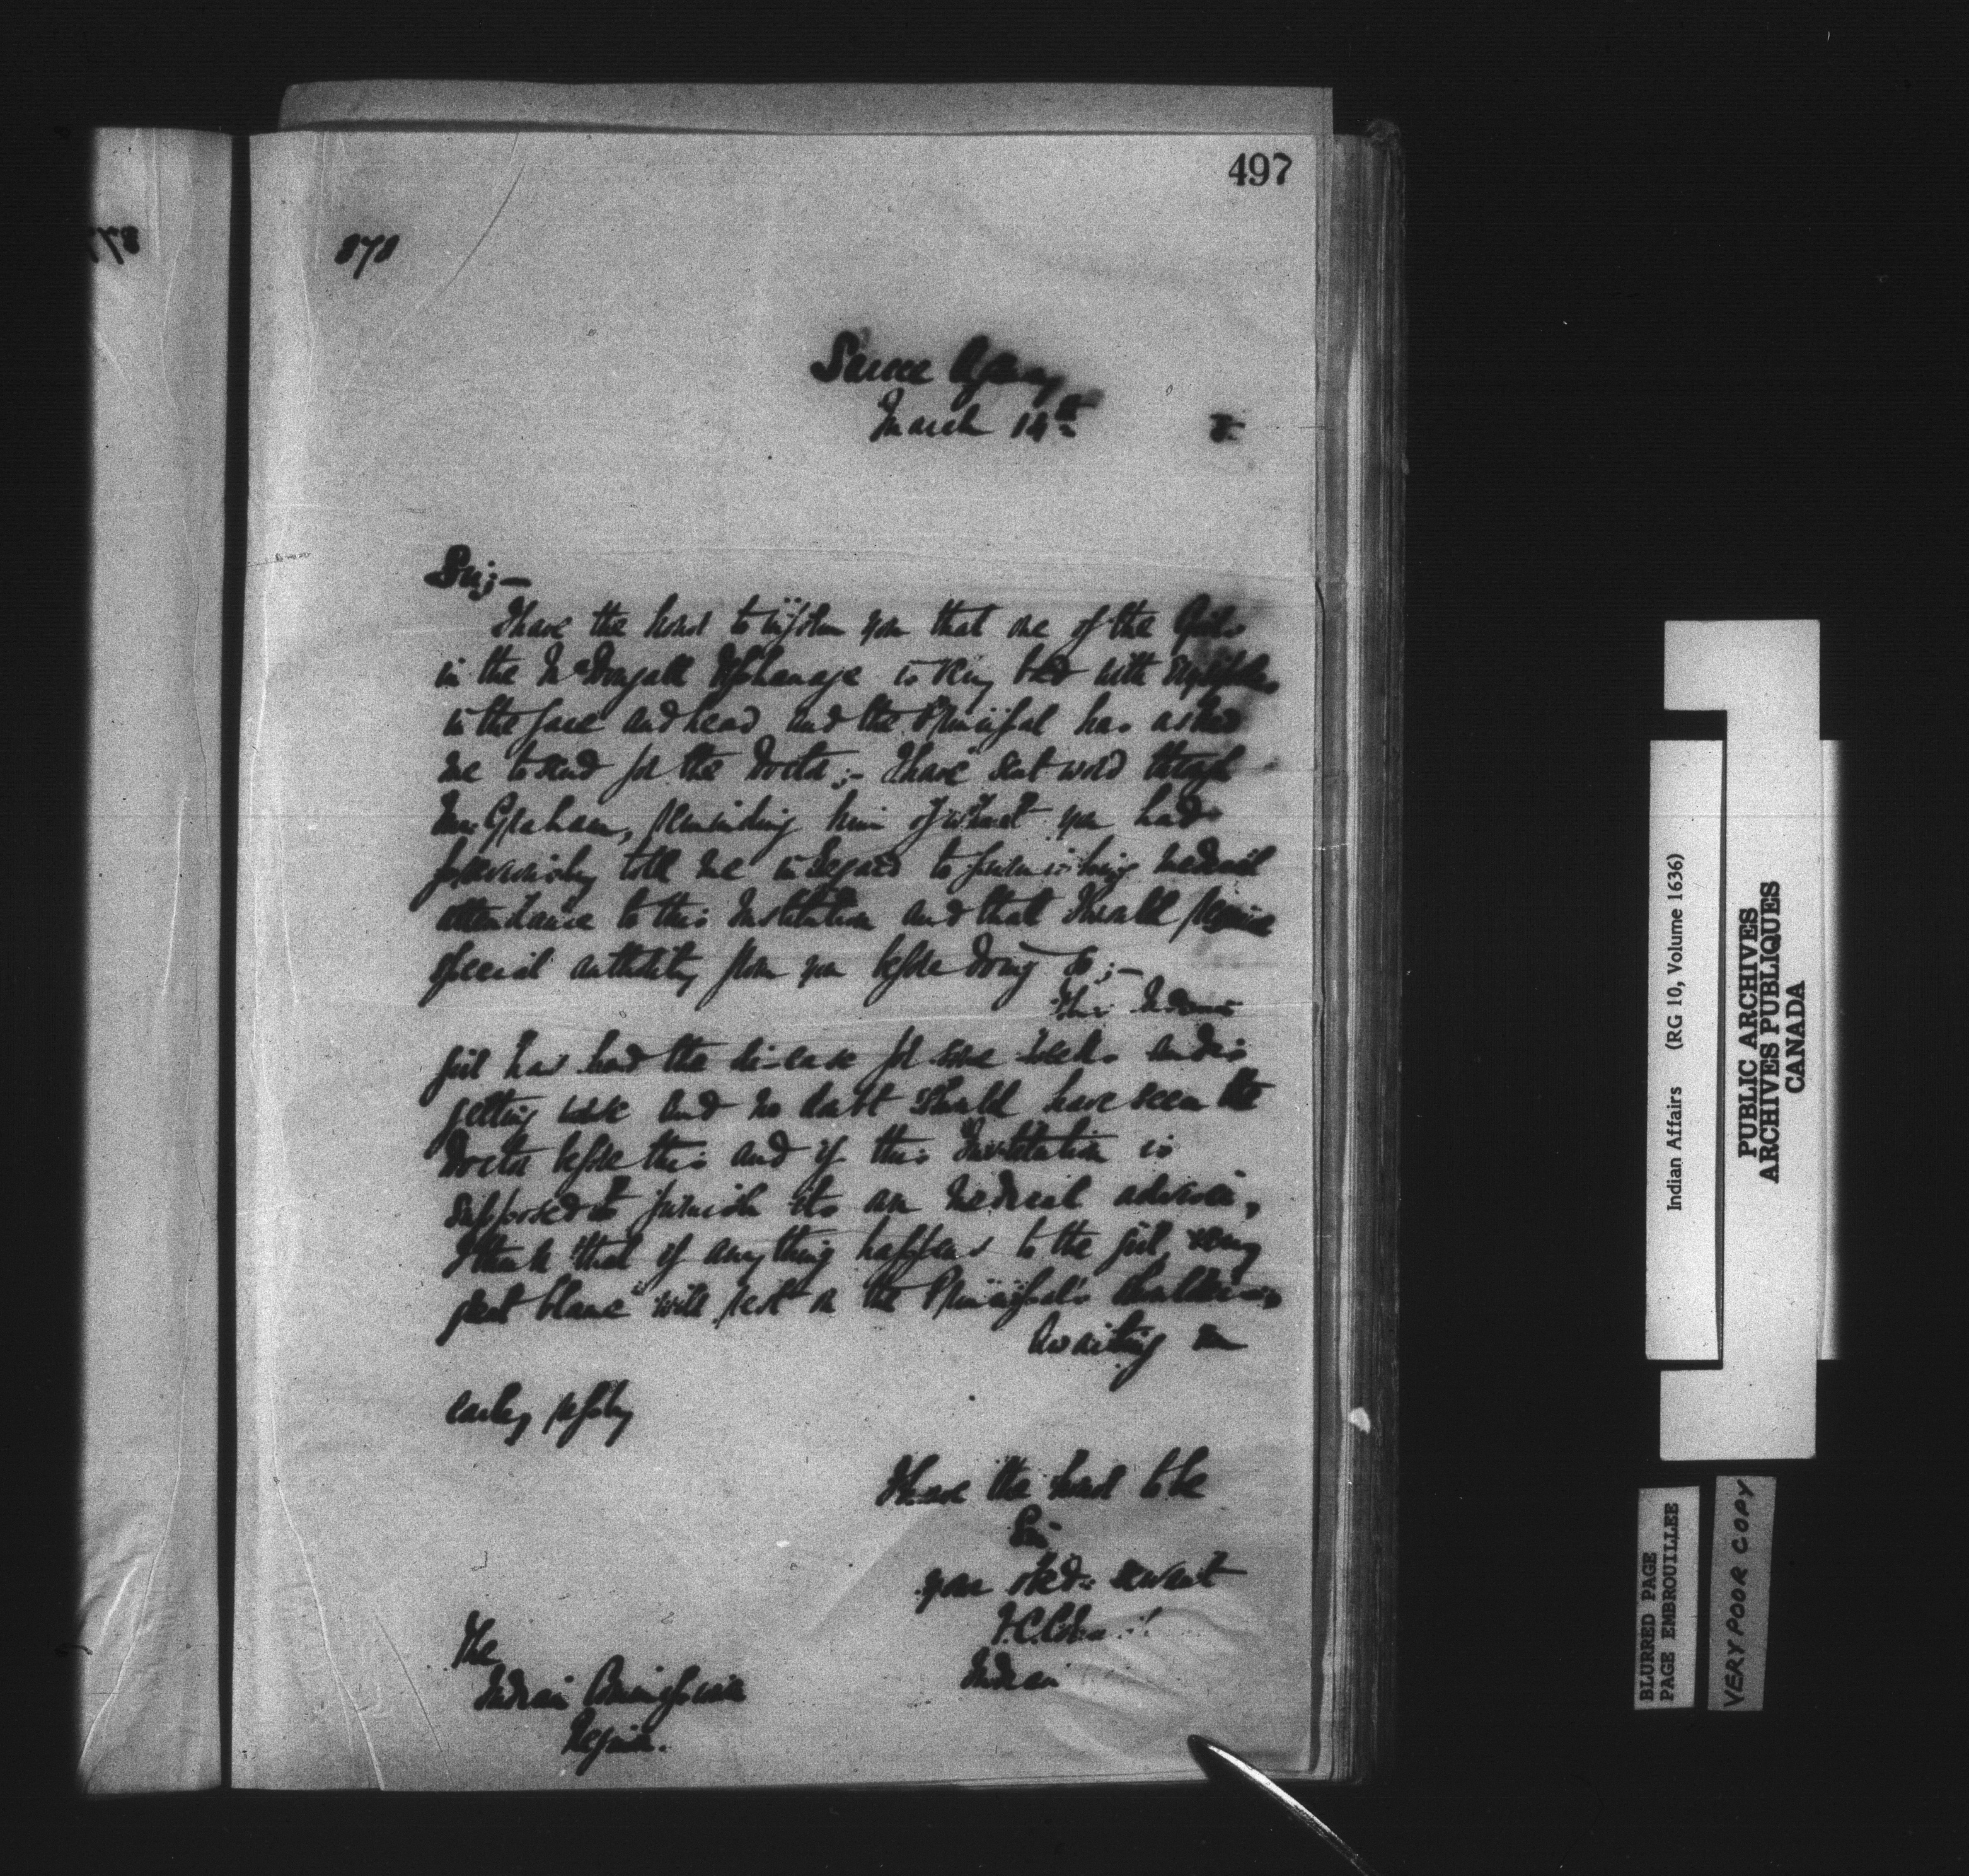 497
878
Sarcee Agency
March 14th
Sir;-
I have the honor to inform you that one of the Girls
in the McDougall Orphanage is very bad with erysipelas
in the face and head and the Principal has asked
me to send for the Doctor;- I have sent word through
Mr. Graham, reminding him of what you had
previously told me in regard to furnishing medical
attendance to this Institution and that I would require
special authority from you before doing so;-
This Indian
girl has had the disease for some weeks and is
getting worse and no doubt should have seen the
Doctor before this and if this Institution is
supposed to furnish its own medical advice,
I think that if anything happens to the girl, very
great blame will rest on the Principal's shoulders.
Awaiting an
early reply
I have the honor to be
Sir
your obedt. servant
Indian
The
Indian Commissioner
Regina.
Indian Affairs (RG 10, Volume 1636)
PUBLIC ARCHIVES
ARCHIVES PUBLIQUES
CANADA
BLURRED PAGE
PAGE EMBROUILLEE
VERY POOR COPY